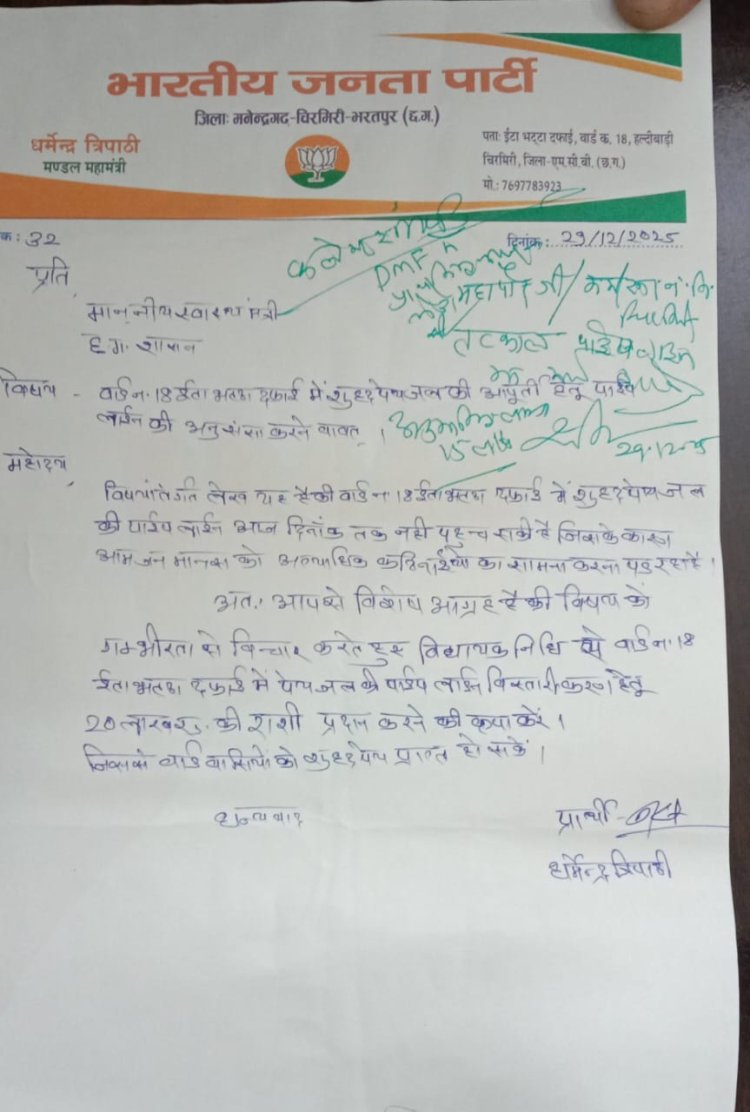 भारतीय जनता पार्टी
जिलाः मनेन्द्रगढ़-चिरमिरी-भरतपुर (छ.ग.)
धर्मेन्द्र त्रिपाठी
मण्डल महामंत्री
पताः ईटा भट्टा दफाई, वार्ड क्र. 18, हल्दीबाड़ी
चिरमिरी, जिला-एम.सी.बी. (छ.ग.)
मो.: 7697783923
क: 32
दिनांक: 29/12/2025
प्रति,
माननीय स्वास्थ्य मंत्री
छ.ग. शासन
DMF
महापौर जी /
तत्काल पाईप लाईन
15 लाख
29.12.25
विषय - वार्ड न. 18 ईटा भट्टा दफाई में शुद्ध पेयजल की आपूर्ती हेतू पाईप
लाईन की अनुसंसा करने बावत ।
महोदय,
विषयांतर्गत लेख यह है की वार्ड न 18 ईटा भट्टा दफाई में शुद्ध पेयजल
की पाईप लाईन आज दिनांक तक नही पहुच सकी है जिसके कारण
आम जन मानस को अत्याधिक कठिनाईयो का सामना करना पड़ रहा है ।
अतः आपसे विशेष आग्रह है की विषय को
गम्भीरता से विचार करते हुए विधायक निधि से वार्ड न. 18
ईटा भट्टा दफाई में पेयजल की पाईप लाईन विस्तारीकरण हेतू
20 लाख रु. की राशी प्रदान करने की कृपा करें ।
जिससे वार्ड वासियो को शुद्ध पेय प्राप्त हो सकें ।
धन्यवाद
प्रार्थी -
धर्मेन्द्र त्रिपाठी